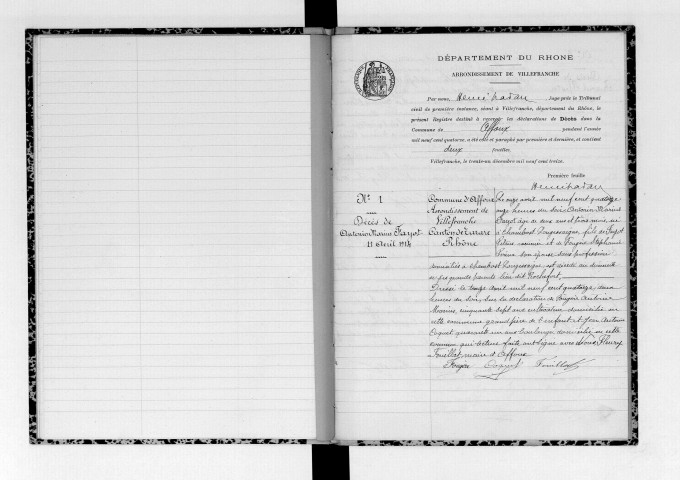 DÉPARTEMENT DU RHONE
ARRONDISSEMENT DE VILLEFRANCHE
Par nous, juge près le Tribunal
civil de première instance, séant à Villefranche, département du Rhône, le
présent Registre destiné à recevoir les déclarations de Décès dans la
Commune de Affoux pendant l'année
mil neuf cent quatorze, a été coté et paraphé par première et dernière, et contient
deux feuilles.
Villefranche, le trente-un décembre mil neuf cent treize.
Première feuille
N° 1
Décès de
Antonin Marius
11 Avril 1914
Commune d'Affoux
Arrondissement de
Villefranche
Canton de Tarare
Rhône
Le onze avril mil neuf cent quatorze
onze heures du soir, Antonin Marius
âgé de deux ans et trois mois, né
à Chambost Longessaigne, fils de
et de Stéphanie
son épouse sans profession
domiciliés à Chambost Longessaigne est décédé au domicile
de ses grands parents lieu dit Rochefort.
Dressé le douze avril mil neuf cent quatorze, deux
heures du soir, sur la déclaration de Antoine
Marius, cinquante sept ans cultivateur domicilié en
cette commune grand père de l'enfant et Jean
Coquet quarante un ans boulanger domicilié en cette
commune qui lecture faite ont signé avec Nous Fleury
Fouillet maire d'Affoux
Coquet Fouillet